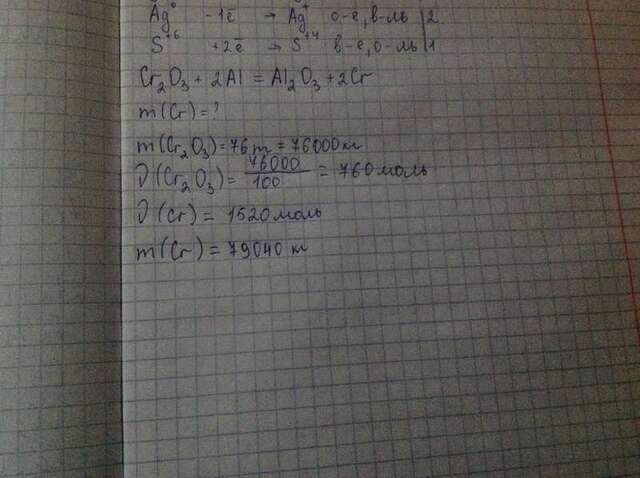 Ag⁰ -1ē → Ag⁺ о-е, в-ль | 2
S⁺⁶ +2ē → S⁺⁴ в-е, о-ль | 1
Cr₂O₃ + 2Al = Al₂O₃ + 2Cr
m(Cr) = ?
m(Cr₂O₃) = 76т = 76000кг
ν(Cr₂O₃) = 76000/100 = 760 моль
ν(Cr) = 1520 моль
m(Cr) = 79040 кг